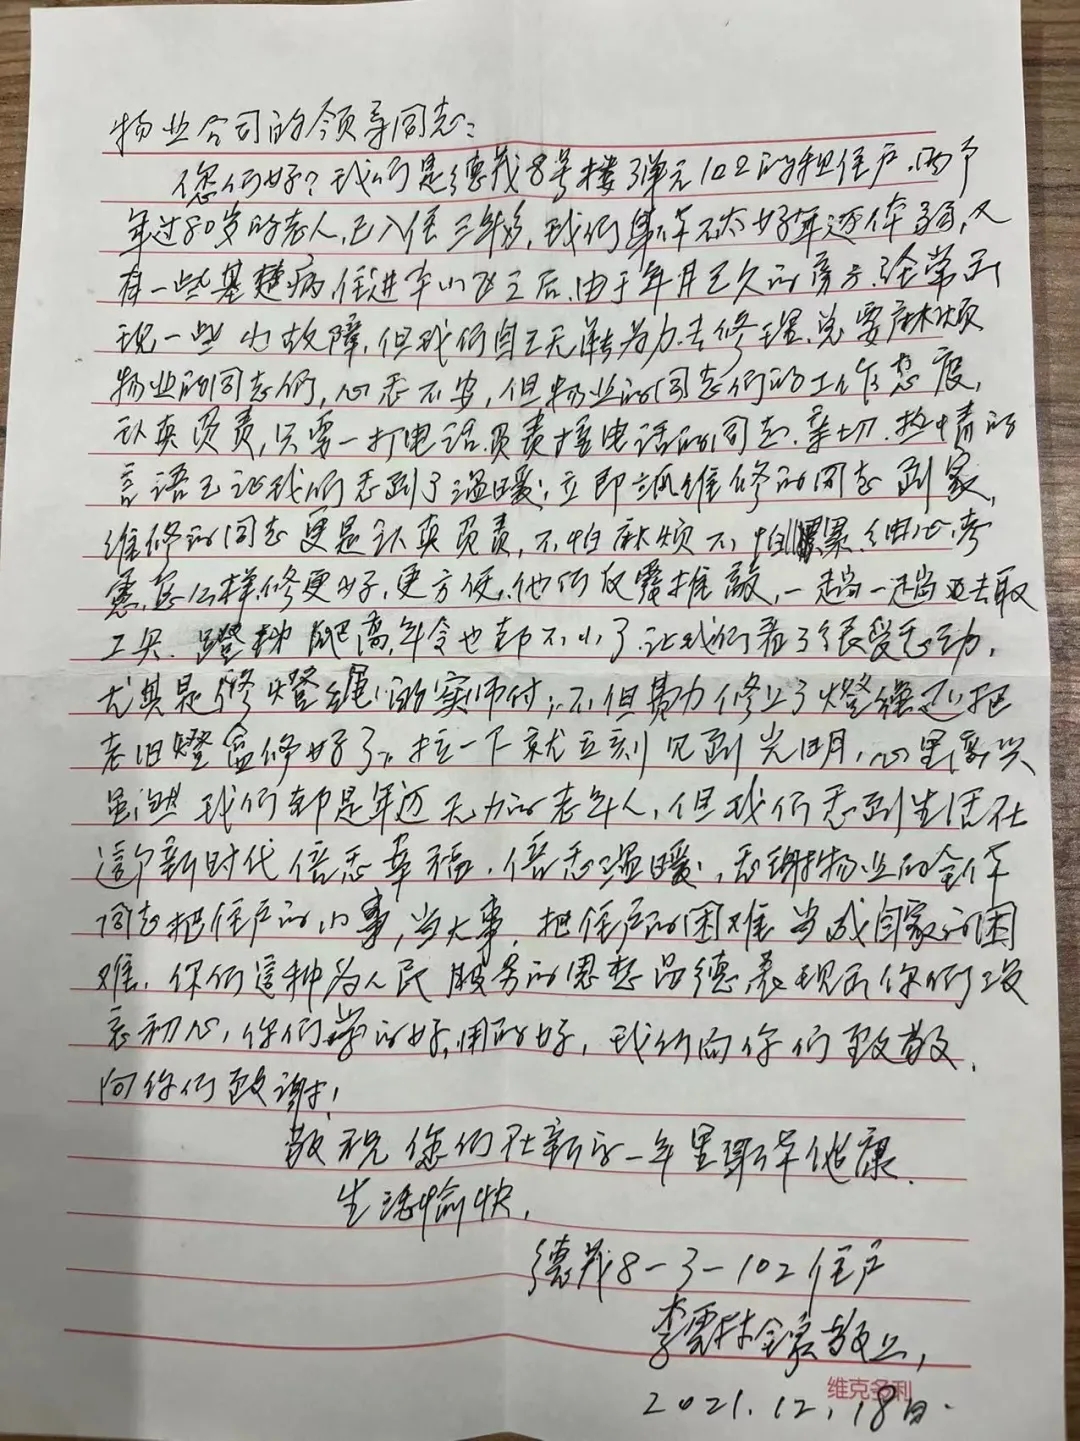 物业公司的领导同志:
您们好?我们是德茂8号楼3单元102的租住户,两个
年过80岁的老人,已入住三年多,我们身体不太好年迈体弱,又
有一些基楚病,住进本小区之后,由于年月已久的房子,经常出
现一些小故障,但我们自己无能为力去修理,总要麻烦
物业的同志们,心悉不安,但物业的同志们的工作态度,
认真负责,只要一打电话,负责接电话的同志,亲切,热情的
言语已让我们感到了温暖,立即派维修的同志到家,
维修的同志更是认真负责,不怕麻烦不怕累,细心考
虑,怎么样修更好,更方便,他们反覆推敲,一趟一趟的去取
工具,蹬梯爬高,年令也都不小了,让我们看了很受感动,
尤其是修燈绳的师付,不但努力修上了燈绳还把
老旧燈盒修好了,拉一下就立刻见到光明,心里高兴
虽然我们都是年迈无力的老年人,但我们感到生活在
這个新时代倍感幸福,倍感温暖,感谢物业的全体
同志把住户的小事,当大事,把住户的困难当成自家的困
难,你们這种为人民服务的思想品德表现出你们不
忘初心,你们学的好,用的好,我们向你们致敬,
向你们致谢!
敬祝您们在新的一年里身体健康,
生活愉快,
德茂8-3-102住户
李云林全家敬上,
维克多利
2021.12.18日.